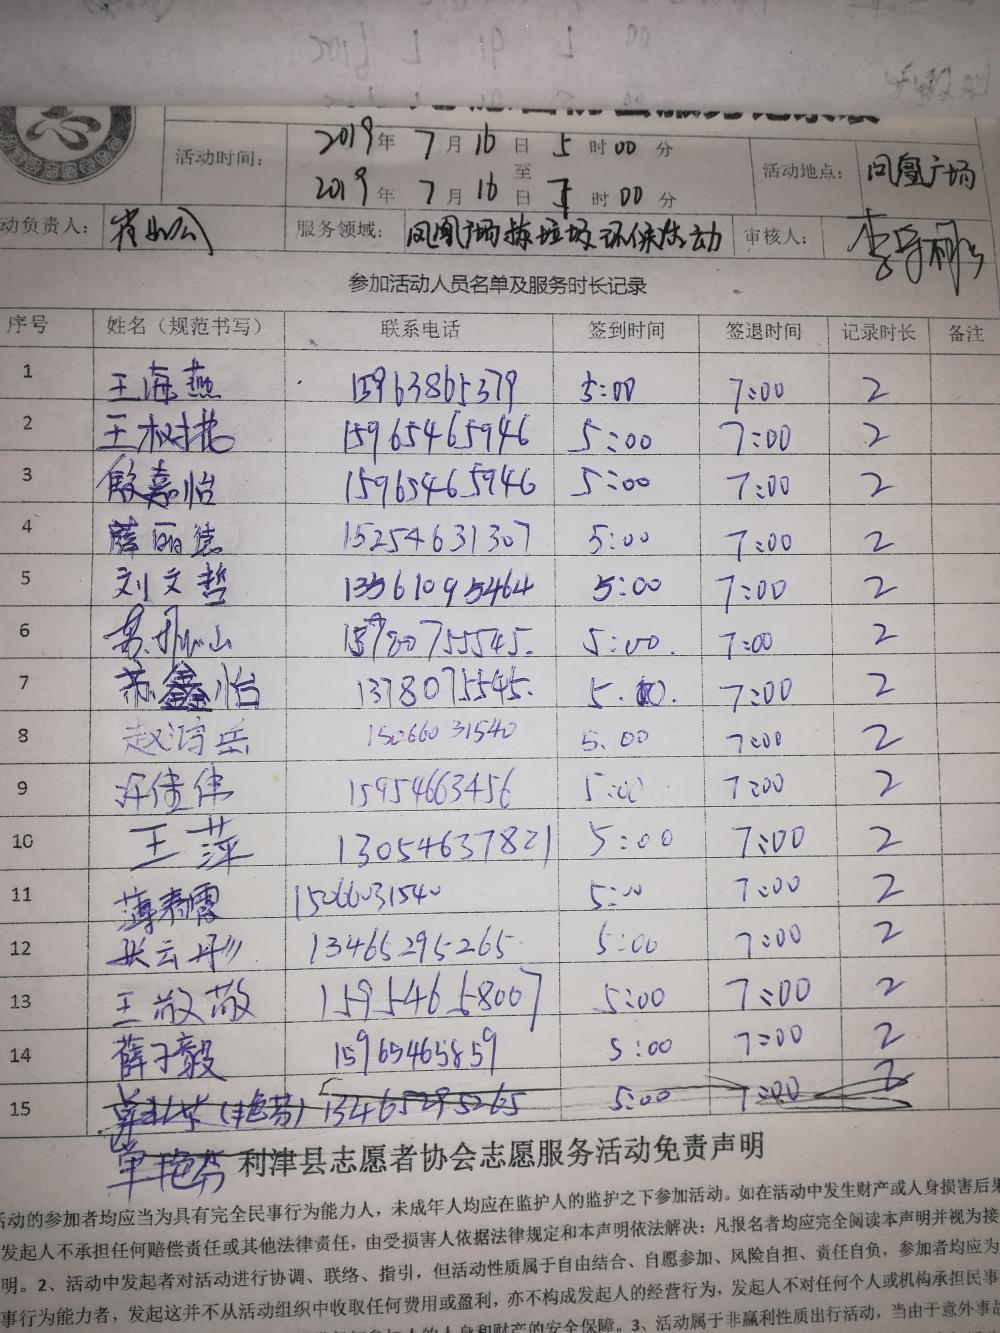 活动时间： 2019年 7月16日 5时00分
至
2019年 7月16日 7时00分
活动地点： 凤凰广场
动负责人：
服务领域： 凤凰广场捡垃圾环保活动 审核人：
参加活动人员名单及服务时长记录
序号 姓名（规范书写） 联系电话 签到时间 签退时间 记录时长 备注
1 王海燕 15963865379 5:00 7:00 2
2 王树花 15965465946 5:00 7:00 2
3 殷嘉怡 15965465946 5:00 7:00 2
4 薛丽德 15254631307 5:00 7:00 2
5 刘文哲 13561095464 5:00 7:00 2
6 5:00. 7:00 2
7 苏鑫怡 13780755545. 5.00. 7:00 2
8 赵浡岳 15066031540 5.00 7:00 2
9 许佳伟 15954663456 5:00 7:00 2
10 王萍 13054637821 5:00 7:00 2
11 薄春霞 15066031540 5:00 7:00 2
12 张云彤 13465295265 5:00 7:00 2
13 王敬敬 15954658007 5:00 7:00 2
14 薛子毅 15965465859 5:00 7:00 2
15 13465295265 5:00 7:00 2
单艳芬
利津县志愿者协会志愿服务活动免责声明
活动的参加者均应当为具有完全民事行为能力人，未成年人均应在监护人的监护之下参加活动。如在活动中发生财产或人身损害后果
发起人不承担任何赔偿责任或其他法律责任，由受损害人依据法律规定和本声明依法解决；凡报名者均应完全阅读本声明并视为接
明。2、活动中发起者对活动进行协调、联络、指引，但活动性质属于自由结合、自愿参加、风险自担、责任自负，参加者均应为
事行为能力者，发起这并不从活动组织中收取任何费用或盈利，亦不构成发起人的经营行为，发起人不对任何个人或机构承担民事
的人身和财产的安全保障。3、活动属于非赢利性质出行活动，当由于意外事故